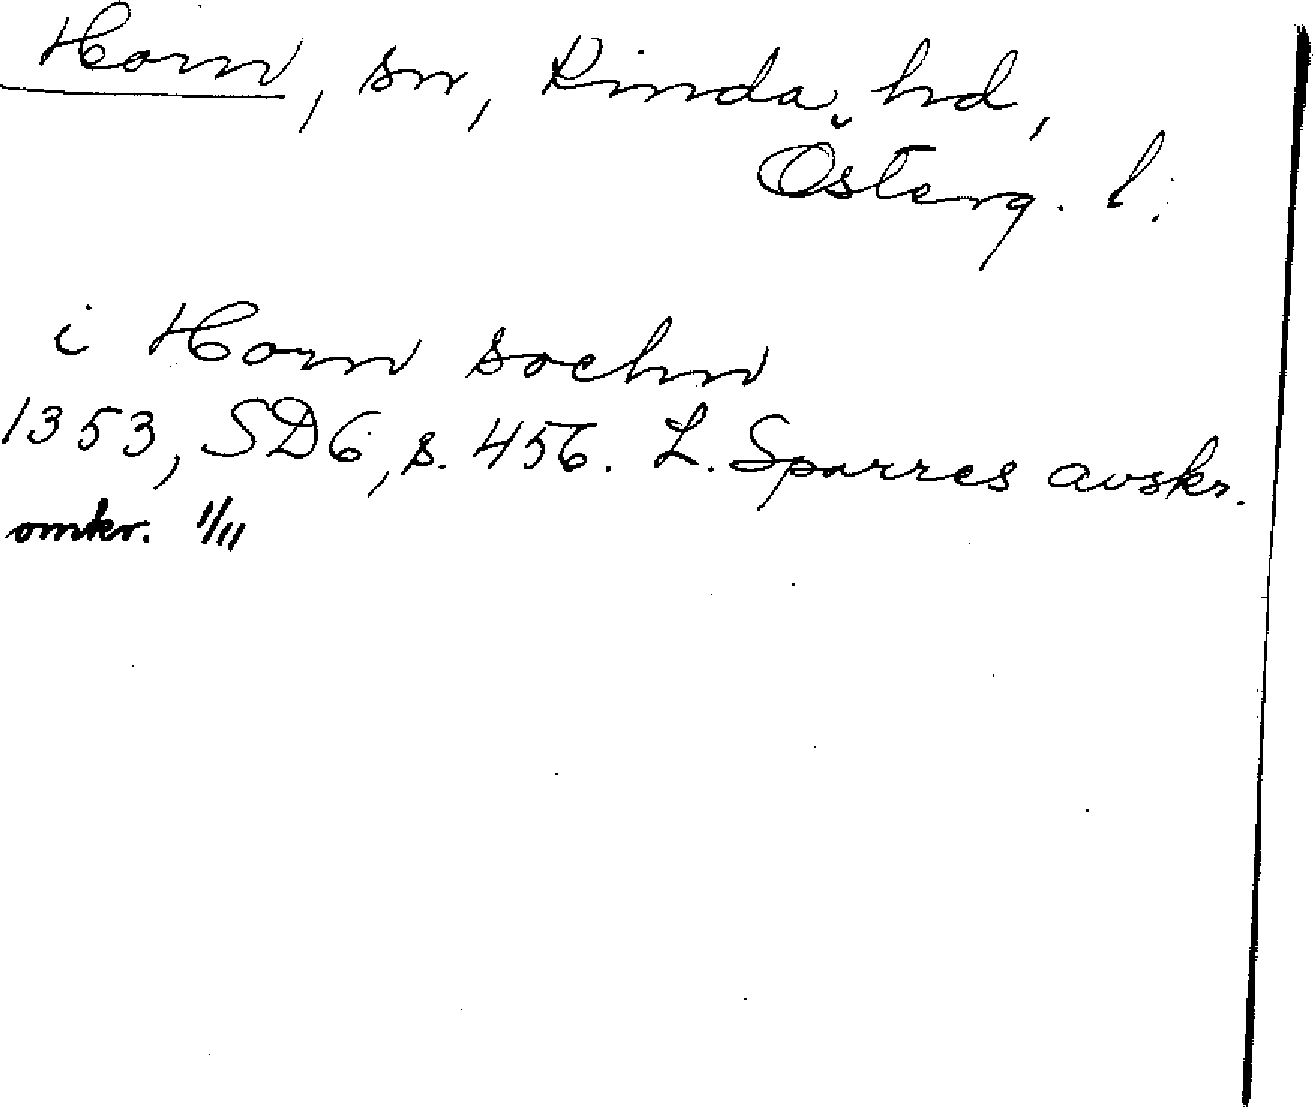 Horn, sn, Kinda hd,
Österg. l.
i Horn sochn
1353, SD6, s. 456. L. Sparres avskr.
omkr. 1/11